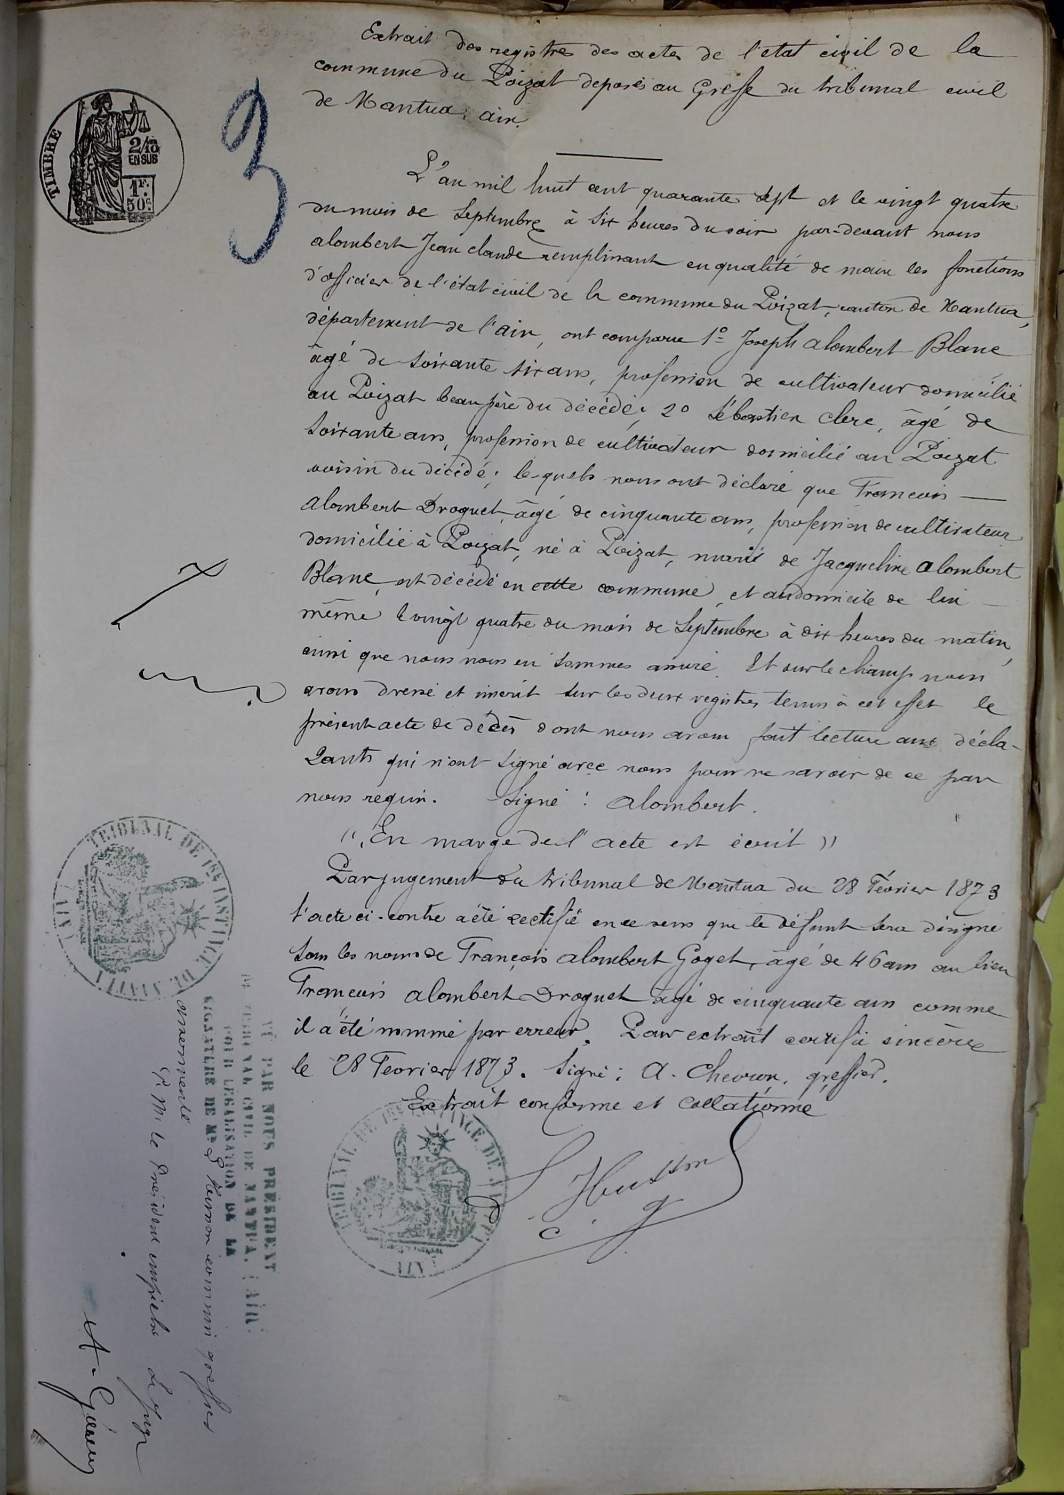 Extrait des registres des actes de l'etat civil de la
commune du Poizat deposés au Greffe du tribunal civil
de Nantua, ain.
TIMBRE
2/10
EN SUB
1F.
50c
3
L'an mil huit cent quarante sept et le vingt quatre
du mois de Septembre à six heures du soir par-devant nous
alombert Jean claude remplissant en qualité de maire les fonctions
d'officier de l'état civil de la commune du Poizat, canton de Nantua,
département de l'ain, ont comparu 1º Joseph alombert Blanc
âgé de soixante six ans, profession de cultivateur domicilié
au Poizat beau père du décédé; 2º Sébastien clerc, âgé de
soixante ans, profession de cultivateur domicilié au Poizat
voisin du décédé; lesquels nous ont déclaré que Francois
alombert Droguet, âgé de cinquante ans, profession de cultivateur
domicilié à Poizat, né à Poizat, marié de Jacqueline alombert
Blanc, est décédé en cette commune, et au domicile de lui
même le vingt quatre du mois de Septembre à dix heures du matin,
ainsi que nous nous en sommes assuré. Et sur le champ nous
avons dressé et inscrit sur les deux registres tenus à cet effet le
présent acte de décès dont nous avons fait lecture aux décla-
rants qui n'ont signé avec nous pour ne savoir de ce par
nous requis. Signé : alombert.
"En marge de l'acte est écrit"
Par jugement du tribunal de Nantua du 28 Février 1873
l'acte ci-contre a été rectifié en ce sens que le défunt sera désigné
sous les noms de François alombert Goget, âgé de 46 ans au lieu
Francois alombert Droguet âgé de cinquante ans comme
il a été nommé par erreur. Pour extrait certifié sincère
le 28 Fevrier 1873. Signé : A. Chevron, greffier.
Extrait conforme et collationné
TRIBUNAL DE 1RE INSTANCE DE NANTUA
(AIN)
TRIBUNAL DE 1RE INSTANCE DE NANTUA
(AIN)
VU PAR NOUS PRÉSIDENT
DU TRIBUNAL CIVIL DE NANTUA, (AIN)
POUR LEGALISATION DE LA
SIGNATURE DE Mr. commis greffier
assermenté
P. Mr le Président empêché Le Juge